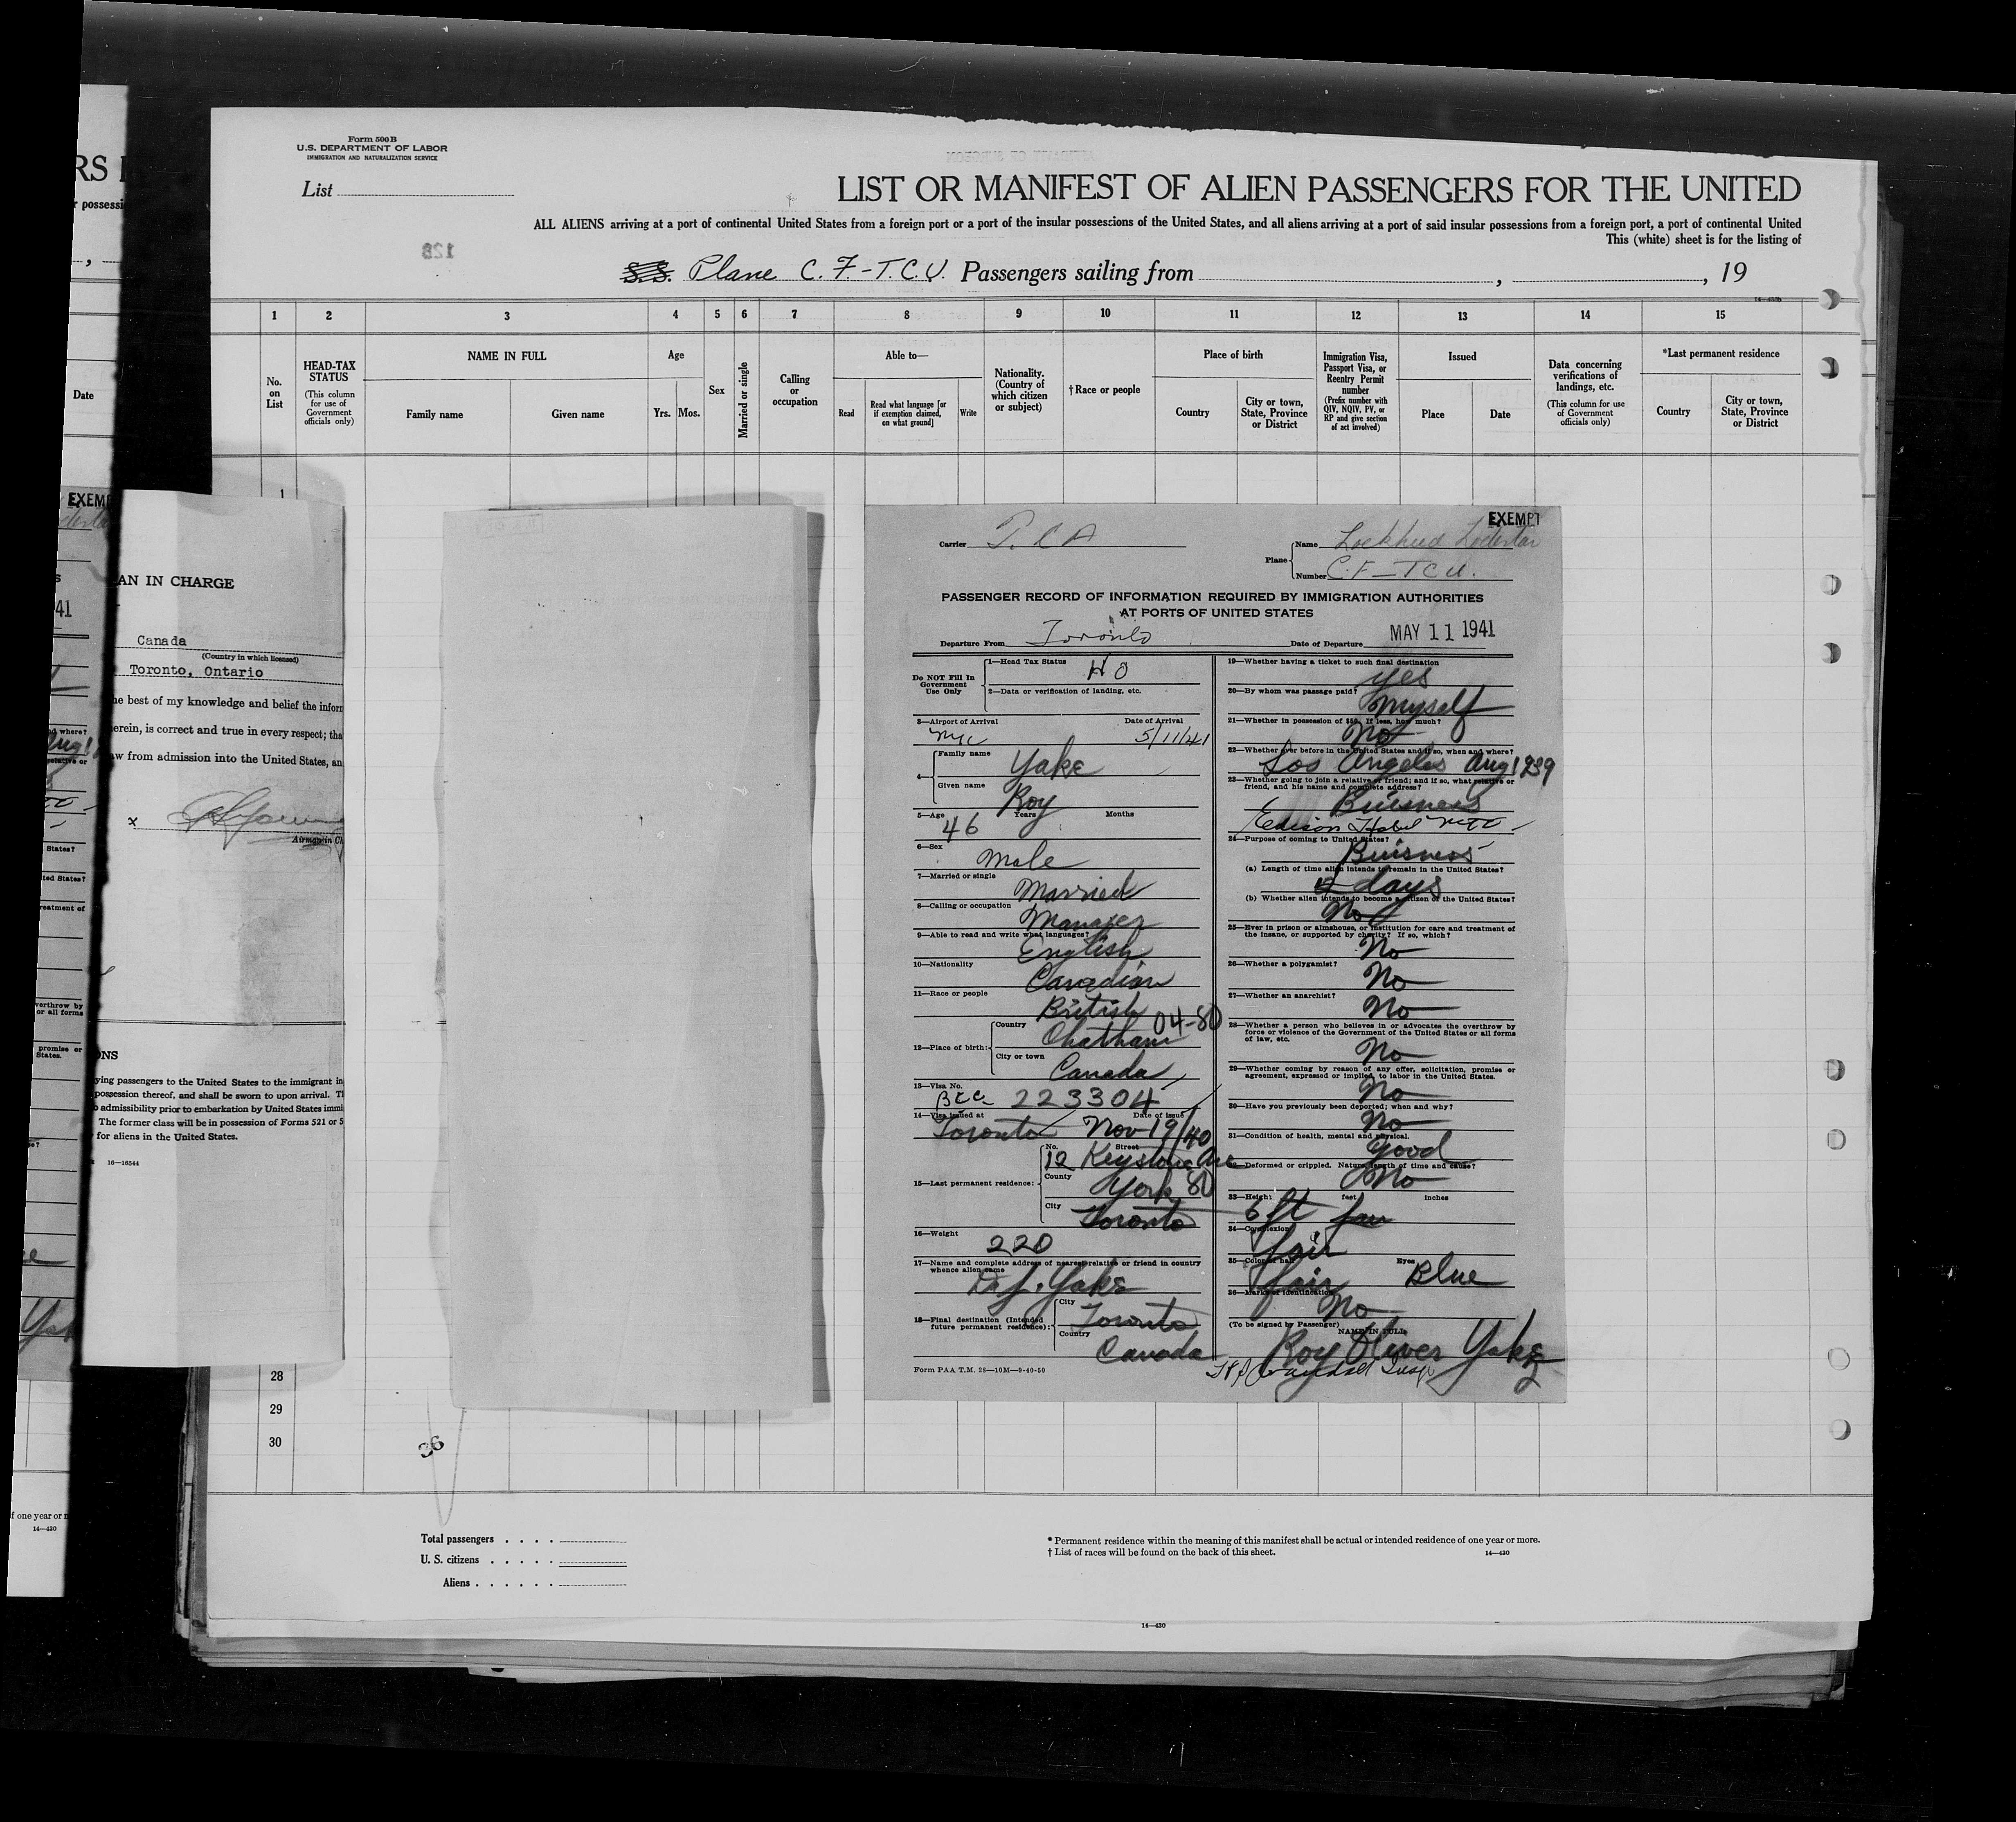 Form 500B
U.S. DEPARTMENT OF LABOR
IMMIGRATION AND NATURALIZATION SERVICE
List
LIST OR MANIFEST OF ALIEN PASSENGERS FOR THE UNITED
ALL ALIENS arriving at a port of continental United States from a foreign port or a port of the insular possessions of the United States, and all aliens arriving at a port of said insular possessions from a foreign port, a port of continental United
This (white) sheet is for the listing of
128
S.S. Plane C.F.-T.C.U. Passengers sailing from , , 19
14—430b
1 2 3 4 5 6 7 8 9 10 11 12 13 14 15
No. on List
HEAD-TAX STATUS
(This column for use of Government officials only)
NAME IN FULL
Family name Given name
Age
Yrs. Mos.
Sex
Married or single
Calling or occupation
Able to—
Read
Read what language [or if exemption claimed, on what ground]
Write
Nationality. (Country of which citizen or subject)
†Race or people
Place of birth
Country
City or town, State, Province or District
Immigration Visa, Passport Visa, or Reentry Permit number
(Prefix number with QIV, NQIV, PV, or RP and give section of act involved)
Issued
Place Date
Data concerning verifications of landings, etc.
(This column for use of Government officials only)
*Last permanent residence
Country
City or town, State, Province or District
1
RS
r possessi
Date
EXEMP
41
AN IN CHARGE
Canada
(Country in which licensed)
Toronto, Ontario
he best of my knowledge and belief the infor
erein, is correct and true in every respect; tha
aw from admission into the United States, an
x
Airman in Ch
ONS
ying passengers to the United States to the immigrant in
possession thereof, and shall be sworn to upon arrival. Th
admissibility prior to embarkation by United States immi
The former class will be in possession of Forms 521 or 5
for aliens in the United States.
16—16544
EXEMPT
Carrier T.C.A
Plane
Name Lockheed Lodestar
Number C.F-TCU.
PASSENGER RECORD OF INFORMATION REQUIRED BY IMMIGRATION AUTHORITIES
AT PORTS OF UNITED STATES
Departure From Toronto Date of Departure MAY 11 1941
Do NOT Fill In Government Use Only
1—Head Tax Status
2—Data or verification of landing, etc.
3—Airport of Arrival Date of Arrival
NYC 5/11/41
4—
Family name Yake
Given name Roy
5—Age 46 Years Months
6—Sex Male
7—Married or single Married
8—Calling or occupation Manager
9—Able to read and write what languages? English
10—Nationality Canadian
11—Race or people British
04-80
12—Place of birth:
Country Chatham
City or town Canada
13—Visa No. BCC 223304
14—Visa issued at Date of issue
Toronto Nov 19/40
15—Last permanent residence:
No. Street
12 Keystone Ave
County York 80
City Toronto
16—Weight 220
17—Name and complete address of nearest relative or friend in country whence alien came
Yake
18—Final destination (Intended future permanent residence):
City Toronto
Country Canada
Form PAA T.M. 28—10M—9-40-50
19—Whether having a ticket to such final destination
yes
20—By whom was passage paid?
Myself
21—Whether in possession of $50. If less, how much?
No
22—Whether ever before in the United States and if so, when and where?
Los Angeles Aug 1939
23—Whether going to join a relative or friend; and if so, what relative or friend, and his name and complete address?
Buisness
Edison Hotel NYC
24—Purpose of coming to United States?
Buisness
(a) Length of time alien intends to remain in the United States?
days
(b) Whether alien intends to become a citizen of the United States?
No
25—Ever in prison or almshouse, or institution for care and treatment of the insane, or supported by charity? If so, which?
No
26—Whether a polygamist?
No
27—Whether an anarchist?
No
28—Whether a person who believes in or advocates the overthrow by force or violence of the Government of the United States or all forms of law, etc.
No
29—Whether coming by reason of any offer, solicitation, promise or agreement, expressed or implied, to labor in the United States.
No
30—Have you previously been deported; when and why?
No
31—Condition of health, mental and physical.
good
32—Deformed or crippled. Nature, length of time and cause?
No
33—Height: feet inches
6 ft
34—Complexion
fair
35—Color of hair Eyes
fair Blue
36—Marks of identification
No
(To be signed by Passenger)
NAME IN FULL
Roy Oliver Yake
28
29
30
36
Total passengers . . . .
U. S. citizens . . . . .
Aliens . . . . . .
* Permanent residence within the meaning of this manifest shall be actual or intended residence of one year or more.
† List of races will be found on the back of this sheet.
14—430
14—430
f one year or m
14—430